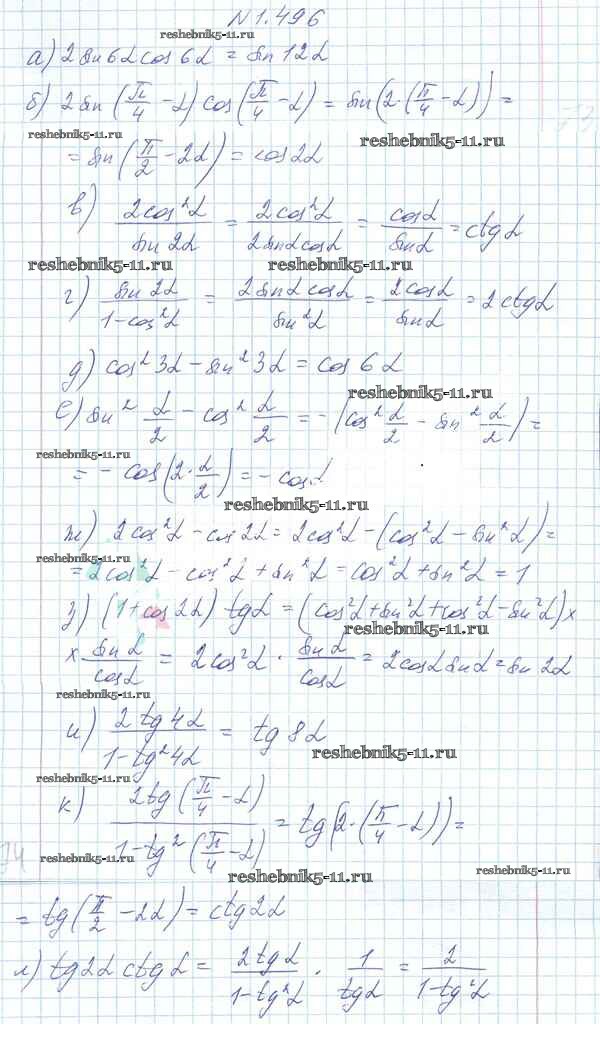 N 1.496
reshebnik5-11.ru
а) 2 sin 6α cos 6α = sin 12α
б) 2 sin (π/4 − α) cos (π/4 − α) = sin (2·(π/4 − α)) =
reshebnik5-11.ru
reshebnik5-11.ru
= sin (π/2 − 2α) = cos 2α
в) 2cos²α / sin 2α = 2cos²α / 2 sin α cos α = cos α / sin α = ctg α
reshebnik5-11.ru
reshebnik5-11.ru
г) sin 2α / 1 − cos²α = 2 sin α cos α / sin²α = 2cos α / sin α = 2 ctg α
д) cos² 3α − sin² 3α = cos 6α
reshebnik5-11.ru
е) sin² α/2 − cos² α/2 = − (cos² α/2 − sin² α/2) =
reshebnik5-11.ru
= − cos (2·α/2) = − cos α
reshebnik5-11.ru
ж) 2cos²α − cos 2α = 2cos²α − (cos²α − sin²α) =
reshebnik5-11.ru
= 2cos²α − cos²α + sin²α = cos²α + sin²α = 1
з) (1 + cos 2α) tg α = (cos²α + sin²α + cos²α − sin²α) ×
reshebnik5-11.ru
× sin α / cos α = 2cos²α · sin α / cos α = 2cos α sin α = sin 2α
reshebnik5-11.ru
и) 2 tg 4α / 1 − tg² 4α = tg 8α
reshebnik5-11.ru
reshebnik5-11.ru
к) 2tg (π/4 − α) / 1 − tg² (π/4 − α) = tg (2·(π/4 − α)) =
reshebnik5-11.ru
reshebnik5-11.ru
reshebnik5-11.ru
= tg (π/2 − 2α) = ctg 2α
л) tg 2α ctg α = 2 tg α / 1 − tg²α · 1 / tg α = 2 / 1 − tg²α